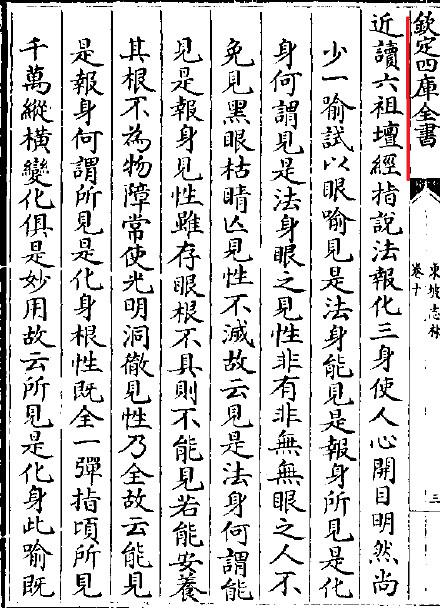 欽定四庫全書
東坡志林
卷十
三
近讀六祖壇經指說法報化三身使人心開目明然尚
少一喻試以眼喻見是法身能見是報身所見是化
身何謂見是法身眼之見性非有非無無眼之人不
免見黑眼枯睛亾見性不滅故云見是法身何謂能
見是報身見性雖存眼根不具則不能見若能安養
其根不為物障常使光明洞徹見性乃全故云能見
是報身何謂所見是化身根性既全一彈指頃所見
千萬縱橫變化俱是妙用故云所見是化身此喻既